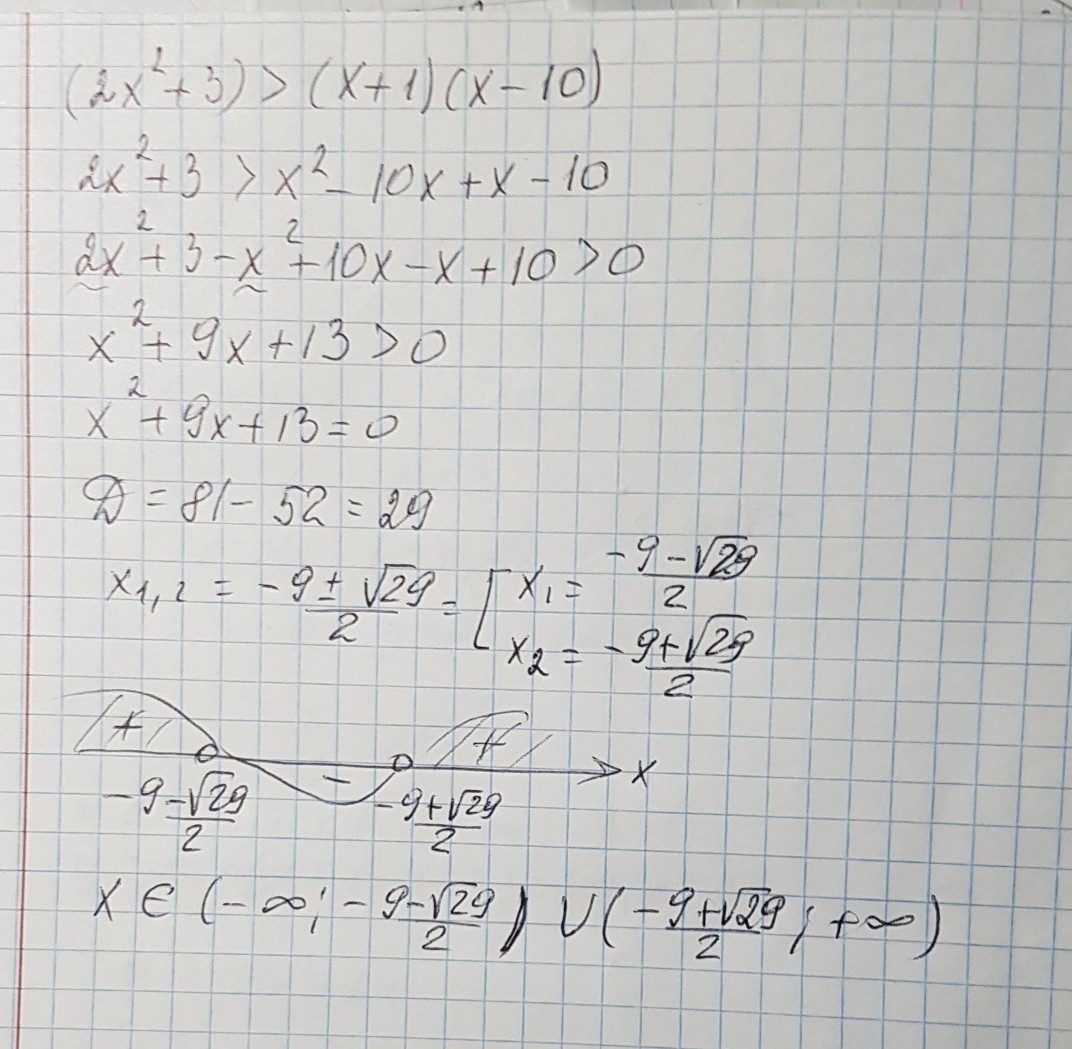 (2x²+3)>(x+1)(x-10)
2x²+3 > x²-10x+x-10
2x²+3-x²+10x-x+10>0
x²+9x+13>0
x²+9x+13=0
D = 81-52=29
x₁,₂ = (-9±√29)/2 = [ x₁ = (-9-√29)/2
x₂ = (-9+√29)/2
+ - + x
(-9-√29)/2 (-9+√29)/2
x ∈ (-∞; (-9-√29)/2) ∪ ((-9+√29)/2; +∞)